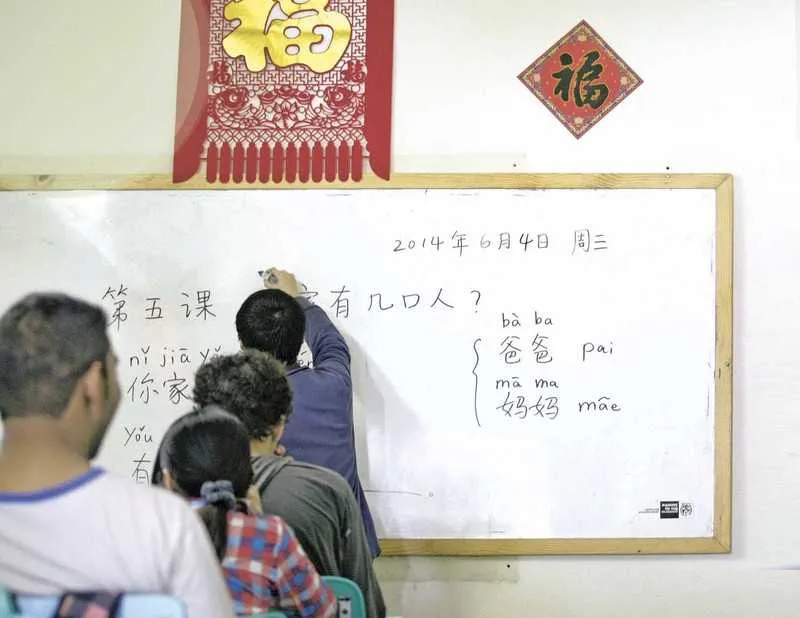 福
福 福
福
2014年6月4日 周三
第五课 家有几口人?
bà ba
爸爸 pai
mā ma
妈妈 mãe
nǐ jiā
你家
Yǒu
有